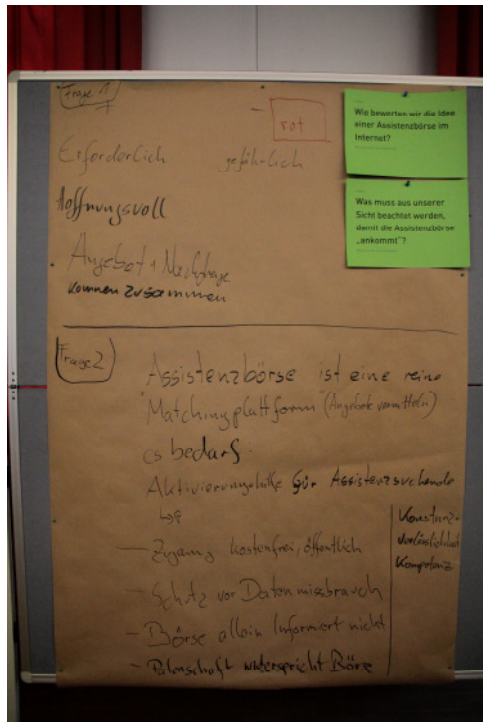 Frage 1
rot
Erforderlich gefährlich
Hoffnungsvoll
Angebot + Nachfrage
kommen zusammen
Wie bewerten wir die Idee
einer Assistenzbörse im
Internet?
Was muss aus unserer
Sicht beachtet werden,
damit die Assistenzbörse
„ankommt"?
Frage 2
Assistenzbörse ist eine reine
Matchingplattform (Angebote vermitteln)
es bedarf
Aktivierungshilfe für Assistenzsuchende
– Zugang kostenfrei, öffentlich
– Schutz vor Datenmissbrauch
– Börse allein Informiert nicht
– Patenschaft widerspricht Böre
Konstanz
Verlässlichkeit
Kompetenz